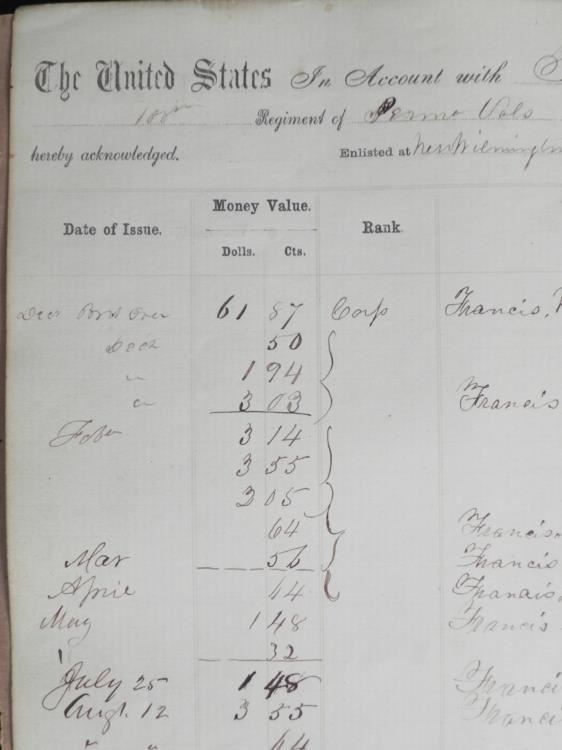 The United States In Account with
Regiment of Penna Vols
hereby acknowledged. Enlisted at New Wilmington
Date of Issue. Money Value. Rank.
Dolls. Cts.
61 87 Corp Francis,
50
" 1 94
" 3 03 Francis
3 14
3 55
3 05
64 Francis
Mar 56 Francis
April 44 Francis
May 1 48 Francis
" 32
July 25 1 48 Francis
Augt. 12 3 55 Francis
" " 44